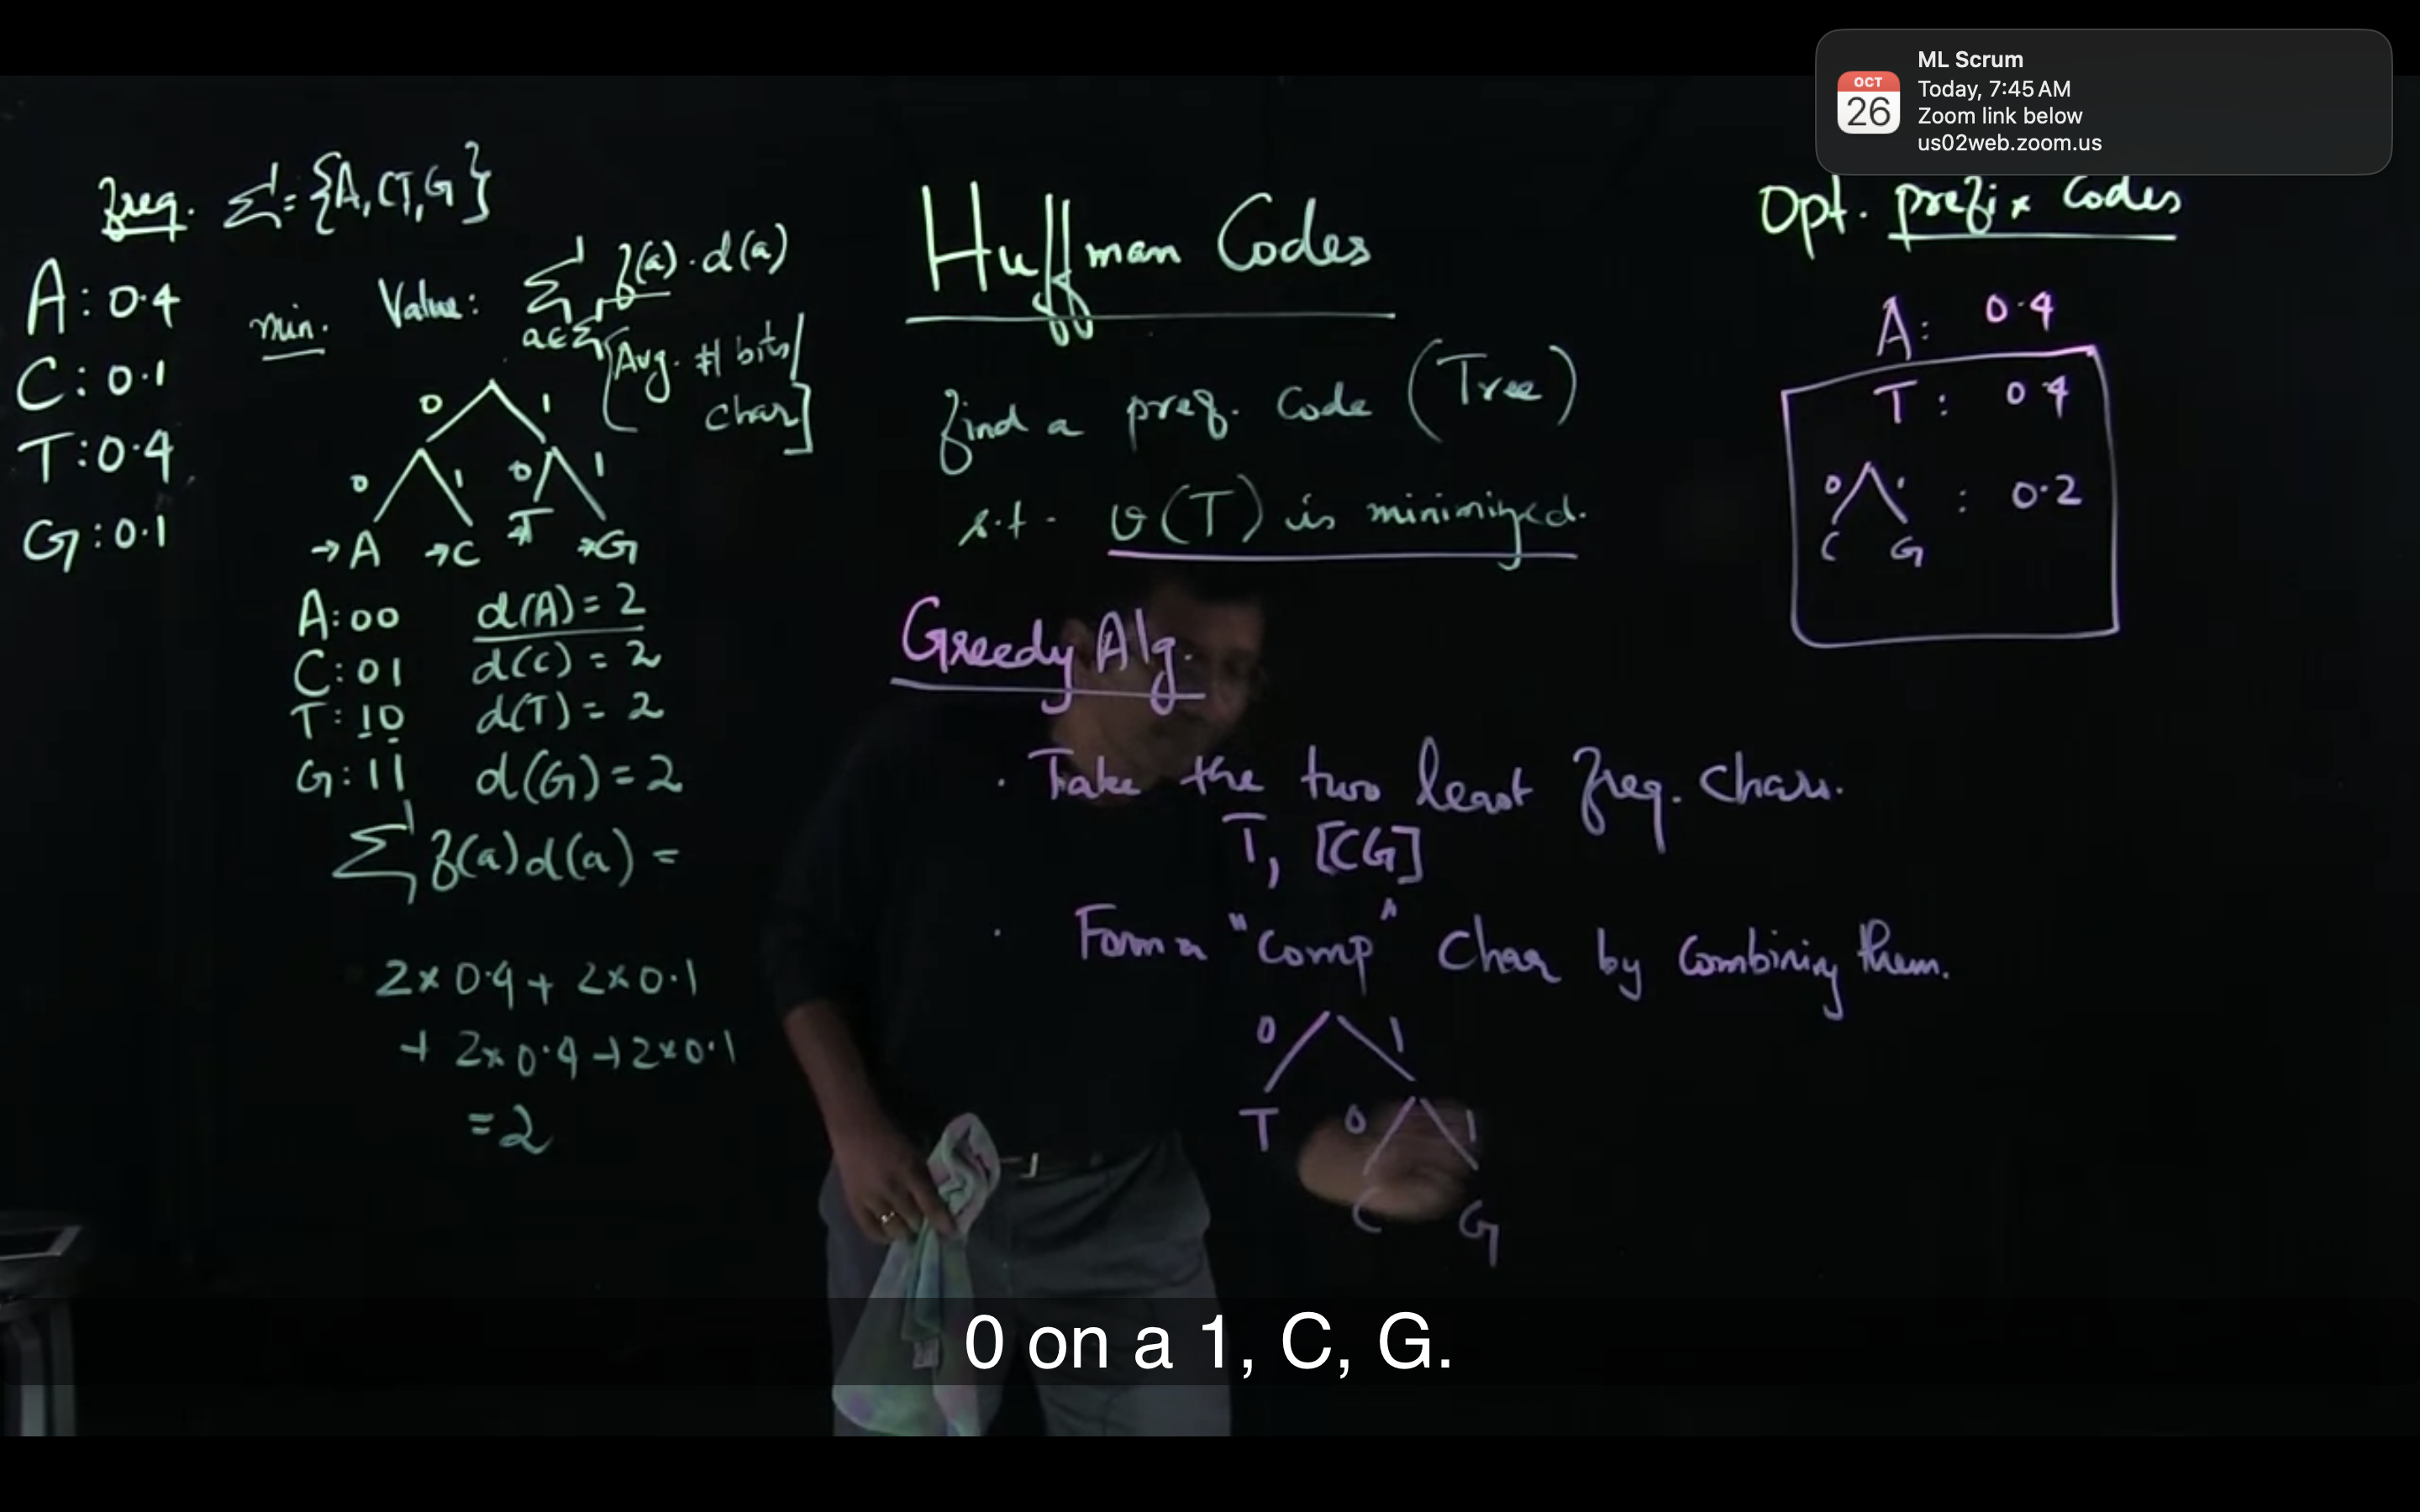 ML Scrum
OCT
26
Today, 7:45 AM
Zoom link below
us02web.zoom.us
freq. Σ = {A, C, T, G}
A: 0.4
C: 0.1
T: 0.4
G: 0.1
min. Value: Σ f(a) · d(a)
a∈Σ
[Avg. # bits/
char]
0 1
0 1 0 1
→A →C →T →G
A: 00 d(A) = 2
C: 01 d(C) = 2
T: 10 d(T) = 2
G: 11 d(G) = 2
Σ f(a) d(a) =
2 × 0.4 + 2 × 0.1
+ 2 × 0.4 + 2 × 0.1
= 2
Huffman Codes
find a pref. Code (Tree)
s.t. v(T) is minimized.
Greedy Alg.
· Take the two least freq. chars.
T, [CG]
· Form a "Comp" Char by Combining them.
0 1
T 0 1
C G
Opt. prefix Codes
A: 0.4
T: 0.4
0 1 : 0.2
C G
0 on a 1, C, G.